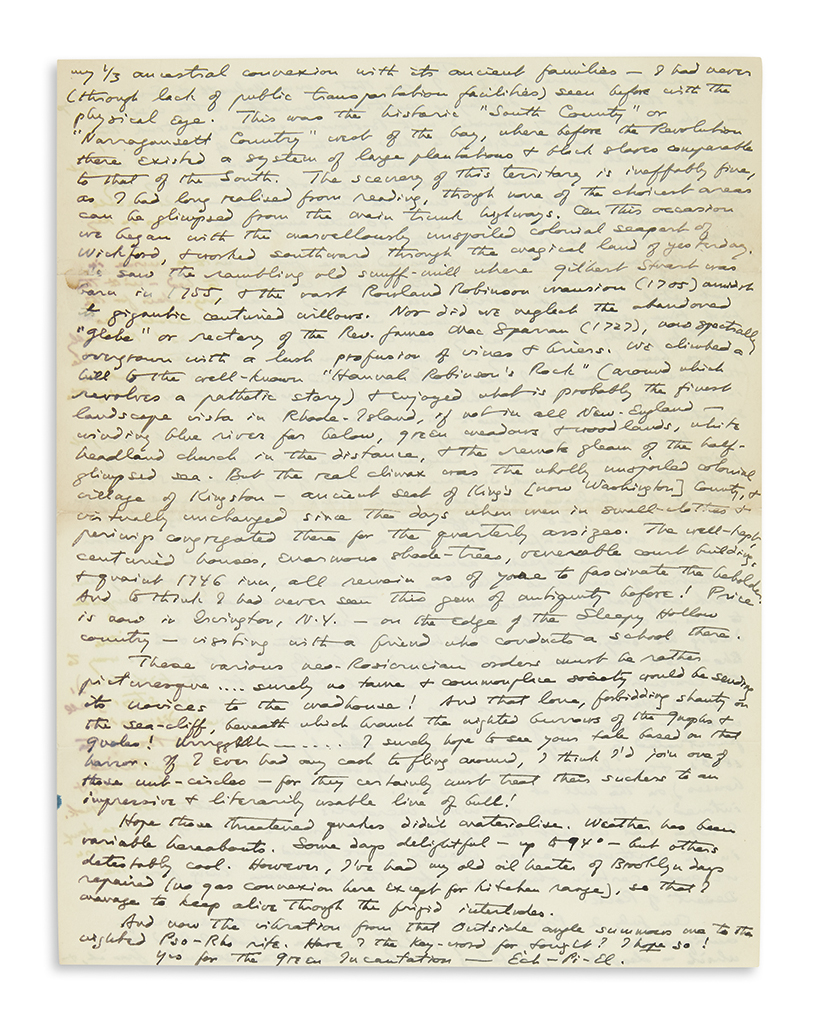 my 1/3 ancestral connexion with its ancient families — I had never
(through lack of public transportation facilities) seen before with the
physical eye. This was the historic "South County" or
"Narragansett Country" west of the bay, where before the Revolution
there existed a system of large plantations & black slaves comparable
to that of the South. The scenery of this territory is ineffably fine,
as I had long realised from reading, though none of the choicest areas
can be glimpsed from the main trunk highways. On this occasion
we began with the marvellously unspoiled colonial seaport of
Wickford, & worked southward through the magical land of yesterday.
We saw the rambling old snuff-mill where Gilbert Stuart was
born in 1755, & the vast Rowland Robinson mansion (1705) amidst
its gigantic centuried willows. Nor did we neglect the abandoned
"glebe" or rectory of the Rev. James MacSparran (1727), now spectrally
overgrown with a lush profusion of vines & briers. We climbed a
hill to the well-known "Hannah Robinson's Rock" (around which
revolves a pathetic story) & enjoyed what is probably the finest
landscape vista in Rhode-Island, if not in all New-England —
winding blue river far below, green meadows & woodlands, white
headland church in the distance, & the remote gleam of the half-
glimpsed sea. But the real climax was the wholly unspoiled colonial
village of Kingston — ancient seat of King's [now Washington] County, &
virtually unchanged since the days when men in small-clothes &
periwigs congregated there for the quarterly assizes. The well-kept
centuried houses, enormous shade-trees, venerable court building,
& quaint 1746 inn, all remain as of yore to fascinate the beholder.
And to think I had never seen this gem of antiquity before! Price
is now in Irvington, N.Y. — on the edge of the Sleepy Hollow
country — visiting with a friend who conducts a school there.
These various neo-Rosicrucian orders must be rather
picturesque .... surely no tame & commonplace society would be sending
its novices to the madhouse! And that lone, forbidding shanty on
the sea-cliff, beneath which branch the nighted burrows of the &
! — ..... I surely hope to see your tale based on that
horror. If I ever had any cash to fling around, I think I'd join one of
those nut-circles — for they certainly must treat their suckers to an
impressive & literarily usable line of bull!
Hope those threatened quakes didn't materialise. Weather has been
variable hereabouts. Some days delightful — up to 94° — but others
detestably cool. However, I've had my old oil heater of Brooklyn days
repaired (no gas connexion here except for kitchen range), so that I
manage to keep alive through the frigid interludes.
And now the vibration from that Outside angle summons me to the
nighted Pso-Rho rite. Have I the key-word for tonight? I hope so!
Yrs for the Green Incantation — Ech-Pi-El.